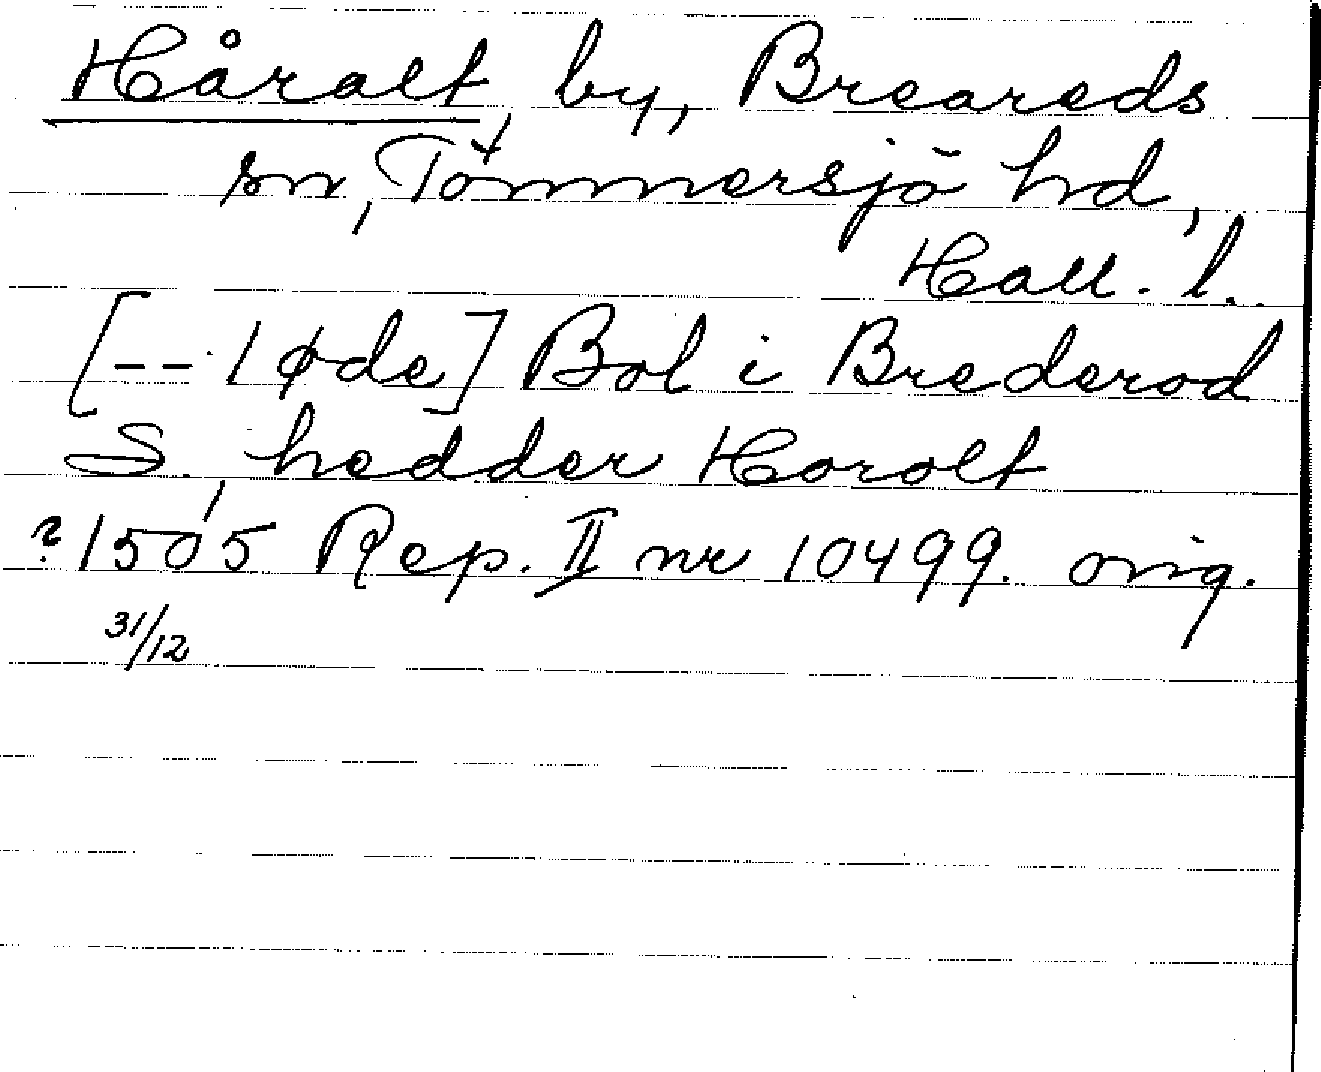 Håralt, by, Breareds
sn, Tönnersjö hd,
Hall. l.
[-- 1 øde] Bol i Brederod
S. hedder Horolt
? 1505 Rep. II nr 10499. orig.
31/12